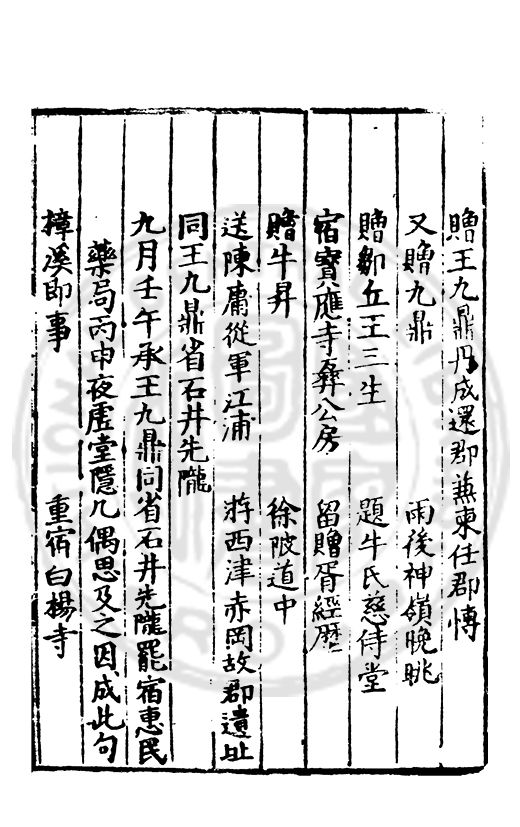 贈王九鼎丹成還郡兼柬任郡博
又贈九鼎　雨後神嶺晚眺
贈鄒丘王三生　題牛氏慈侍堂
宿寶應寺彝公房　留贈胥經歷
贈牛昇　徐陂道中
送陳庸從軍江浦　游西津赤岡故郡遺址
同王九鼎省石井先隴
九月壬午承王九鼎同省石井先隴罷宿惠民
藥局丙申夜虛堂隱几偶思及之因成此句
樟溪即事　重宿白楊寺